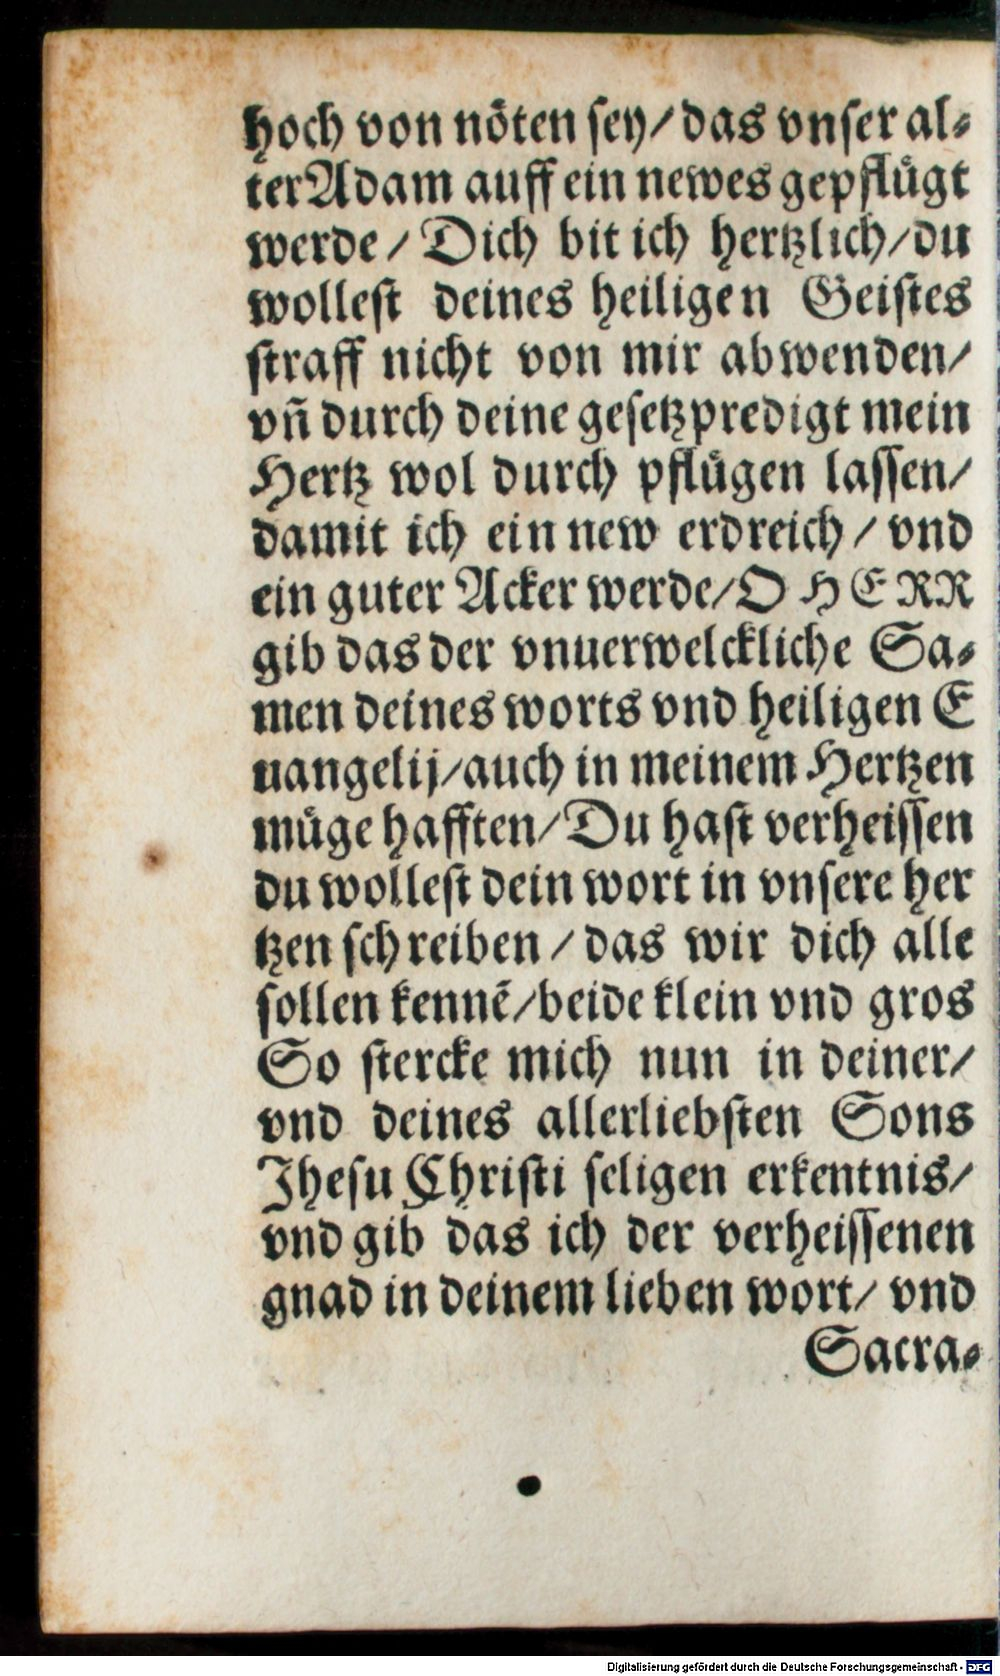 hoch von nöten sey/das vnser al⸗
ter Adam auff ein newes gepflügt
werde/ Dich bit ich hertzlich/du
wollest deines heiligen Geistes
straff nicht von mir abwenden/
vñ durch deine gesetzpredigt mein
Hertz wol durch pflügen lassen/
damit ich ein new erdreich/ vnd
ein guter Acker werde/O HERR
gib das der vnuerwelckliche Sa⸗
men deines worts vnd heiligen E
uangelij/auch in meinem Hertzen
müge hafften/Du hast verheissen
du wollest dein wort in vnsere her
tzen schreiben/ das wir dich alle
sollen kennē/beide klein vnd gros
So stercke mich nun in deiner/
vnd deines allerliebsten Sons
Jhesu Christi seligen erkentnis/
vnd gib das ich der verheissenen
gnad in deinem lieben wort/ vnd
Sacra⸗
Digitalisierung gefördert durch die Deutsche Forschungsgemeinschaft - DFG